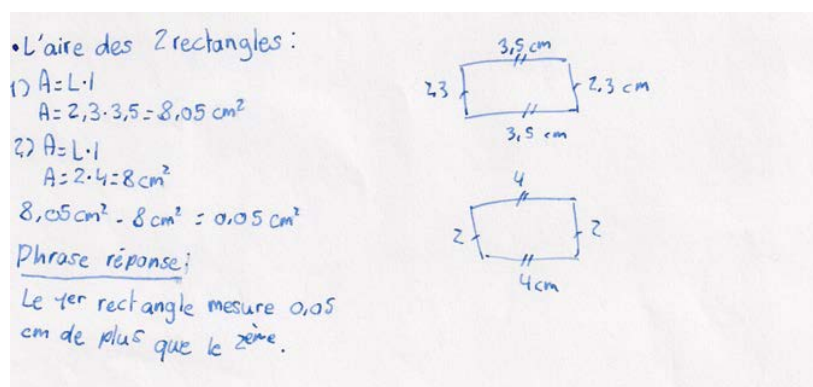 •L'aire des 2 rectangles :
1) A=L·l
A=2,3·3,5=8,05 cm²
2) A=L·l
A=2·4=8cm²
8,05cm² - 8cm² = 0,05 cm²
Phrase réponse:
Le 1er rectangle mesure 0,05
cm de plus que le 2ème.
3,5 cm
2,3
2,3 cm
3,5 cm
4
2
2
4cm